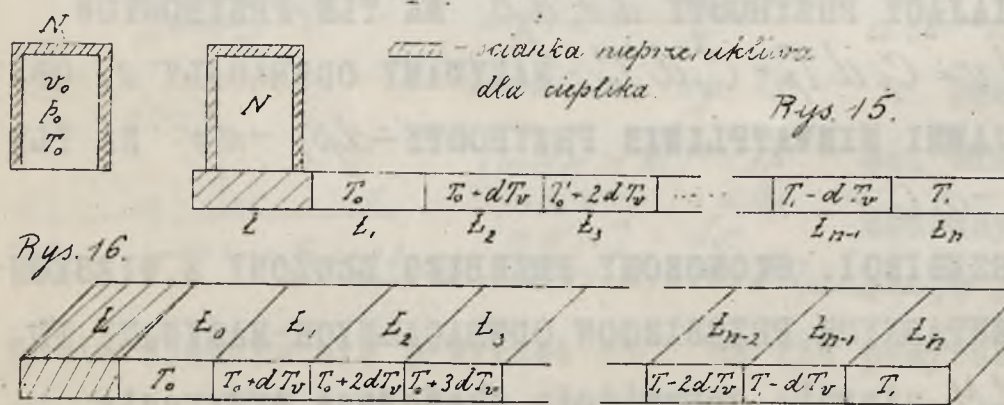 N
v₀
p₀
T₀
N
- ścianka nieprzenikliwa
dla cieplika.
Rys. 15.
T₀ T₀ + dTᵥ T₀ + 2dTᵥ ..... T₁ - dTᵥ T₁
Ł Ł₁ Ł₂ Ł₃ Łₙ₋₁ Łₙ
Rys. 16.
Ł Ł₀ Ł₁ Ł₂ Ł₃ Łₙ₋₂ Łₙ₋₁ Łₙ
T₀ T₀ + dTᵥ T₀ + 2dTᵥ T₀ + 3dTᵥ T₁ - 2dTᵥ T₁ - dTᵥ T₁